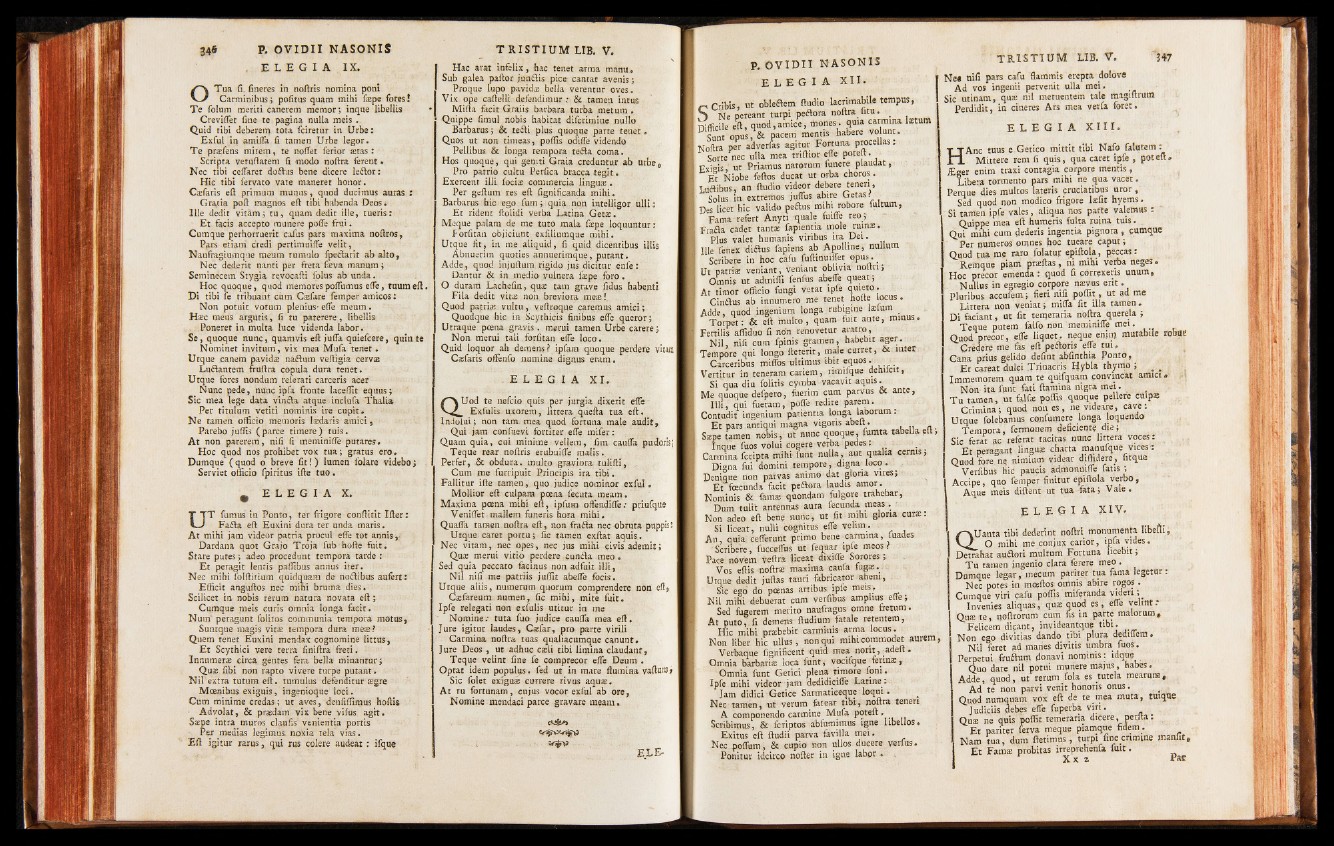 346 P. OVIDII NASONIS
ELEGIA IX.
O Tua fi fineres in noftris nomina poni
Carminibus; pofitus quam mihi fæpe fores!
Te folum meriti canerem memor; inque libellis
Creviffet fine te pagina nulla meis .
Quid tibi deberem tota fciretur in Urbe:
Exful in amiffa fi tamen Urbe legor.
Te præfens mirem, te noffet ferior ætas :
Scripta vetuftatem fi modo noftra ferent .
Nec tibi ceffaret doctus bene dicere lector :
Hic tibi fervato vate maneret honor.
Cæfaris eft primum munus , quod ducimus auras :
Gratia poft magnos eft tibi habenda Deos .
Ille dedit vitam; tu, quam dedit ille, tueris:
Et facis accepto munere poffe frui.
Cumque perhorruerit cafus pars maxima noftros,
Pars etiam credi pertimuiffe velit,
Naufragiumque meum tumulo fpectarit ab alto,
Nec dederit nanti per freta fæva manum;
Seminecem Stygia revocafti folus ab unda.
Hoc quoque, quod memores poffumus effe, tuum eft.
Di tibi fe tribuant cum Cæfare femper amicos:
Non potuit votum plenius effe meum.
Hæc meus argutis, fi tu paterere, libellis
Poneret in multa luce videnda labor.
Se, quoque nunc, quamvis eft juffa quiefcere, quin te
Nominet invitum, vix mea Mufa tenet .
Utque canem pavidæ nactum veftigia cervæ
Luctantem fruftra copula dura tenet.
Utque fores nondum referati carceris acer
Nunc pede, nunc ipfa fronte laceffit equus;
Sic mea lege data vincta atque inclufa Thalia
Per titulum vetiti nominis ire cupit.
Ne tamen officio memoris lædaris amici,
Parebo juffis (parce timere) tuis.
At non parerem, nifi fi meminiffe putares.
Hoc quod nos prohibet vox tua; gratus ero.
Dumque (quod o breve fit!) lumen folare videbo;
Serviet officio fpiritus ifte tuo.
ELEGIA X.
UT fumus in Ponto, ter frigore conftitit Ifter:
Facta eft Euxini dura ter unda maris.
At mihi jam videor patria procul effe tot annis,
Dardana quot Grajo Troja fub hofte fuit.
Stare putes; adeo procedunt tempora tarde :
Et peragit lentis paffibus annus iter.
Nec mihi folftitium quidquam de noctibus aufert:
Efficit anguftos nec mihi bruma dies.
Scilicet in nobis rerum natura novata eft;
Cumque meis curis omnia longa facit.
Num peragunt folitos communia tempora motus,
Suntque magis vitæ tempora dura meæ?
Quem tenet Euxini mendax cognomine littus,
Et Scythici vere terra finiftra freti.
Innumeræ circa gentes fera bella minantur;
Quæ fibi non rapto vivere turpe putant.
Nil extra tutum eft. tumulus defenditur ægre
Mœnibus exiguis, ingenioque loci.
Cum minime credas; ut aves, denfiffimus hoftis
Advolat, & prædam vix bene vifus agit.
Sæpe intra muros claufis venientia portis
Per medias legimus noxia tela vias.
Eft igitur rarus, qui rus colere audeat : ifque
TRISTIUM LIB. V.
Hac arat infelix, hac tenet arma manu.
Sub galea paftor junctis pice cantat avenis;
Proque lupo pavidæ bella verentur oves.
Vix ope caftelli defendimur: & tamen intus
Mifta facit Graiis barbara turba metum.
Quippe fimul nobis habitat difcrimine nullo
Barbarus; & tecti plus quoque parte tenet.
Quos ut non timeas, poffis odiffe videndo
Pellibus & longa tempora tecta coma.
Hos quoque, qui geniti Graia creduntur ab urbe,
Pro patrio cultu Perfica bracca tegit.
Exercent illi fociæ commercia linguæ.
Per geftum res eft fignificanda mihi.
Barbarus hic ego fum; quia non intelligor ulli:
Et rident ftolidi verba Latina Getæ.
Meque palam de me tuto mala fæpe loquuntur:
Forfitan objiciunt exfiliumque mihi.
Utque fit, in me aliquid, fi quid dicentibus illis
Abnuerim quoties annuerimque, putant.
Adde, quod injuftum rigido jus dicitur enfe:
Dantur & in medio vulnera fæpe foro.
O duram Lachefin, quæ tam grave fidus habenti
Fila dedit vitæ non breviora meæ!
Quod patriæ vultu, veftroque caremus amici;
Quodque hic in Scythicis finibus effe queror;
Utraque pœna gravis. merui tamen Urbe carere;
Non merui tali forfitan effe loco.
Quid loquor ah demens? ipfam quoque perdere vitam
Cæfaris offenfo numine dignus eram.
ELEGIA XI.
QUod te nefcio quis per jurgia dixerit effe
Exfulis uxorem, littera quefta tua eft.
Indolui; non tam mea quod fortuna male audit,
Qui jam confuevi fortiter effe mifer:
Quam quia, cui minime vellem, fim cauffa pudoris;
Teque rear noftris erubuiffe malis.
Perfer, & obdura. multo graviora tulifti,
Cum me furripuit Principis ira tibi.
Fallitur ifte tamen, quo judice nominor exful.
Mollior eft culpam pœna fecuta meam.
Maxima pœna mihi eft, ipfum offendiffe: priufque
Veniffet mallem funeris hora mihi.
Quaffa tamen noftra eft, non fracta nec obruta puppis:
Utque caret portu; fic tamen exftat aquis.
Nec vitam, nec opes, nec jus mihi civis ademit;
Quæ merui vitio perdere cuncta meo.
Sed quia peccato facinus non adfuit illi,
Nil nifi me patriis juffit abeffe focis.
Utque aliis, numerum quorum comprendere non eft,
Cæfareum numen, fic mihi, mite fuit.
Ipfe relegati non exfulis utitur in me
Nomine: tuta fuo judice cauffa mea eft.
Jure igitur laudes, Cæfar, pro parte virili
Carmina noftra tuas qualiacumque canunt.
Jure Deos, ut adhuc cæli tibi limina claudant,
Teque velint fine fe comprecor effe Deum.
Optat idem populus. fed ut in mare flumina vaftum,
Sic folet exiguæ currere rivus aquæ.
At tu fortunam, cujus vocor exful ab ore,
Nomine mendaci parce gravare meam.
ELE-
P. OVIDII NASONIS
ELEGIA XII.
SCribis, ut oblectem ftudio lacrimabile tempus,
Ne pereant turpi pectora noftra fitu.
Difficile eft, quod, amice, mones. quia carmina lætum
Sunt opus, & pacem mentis habere volunt.
Noftra per adverfas agitur Fortuna procellas:
Sorte nec ulla mea triftior effe poteft.
Exigis, ut Priamus natorum funere plaudat,
Et Niobe feftos ducat ut orba choros.
Luctibus, an ftudio videor debere teneri,
Solus in extremos juffus abire Getas?
Des licet hic valido pectus mihi robore fultum,
Fama refert Anyti quale fuiffe reo;
Fracta cadet tantæ fapientia mole ruinæ.
Plus valet humanis viribus ira Dei.
Ille fenex dictus fapiens ab Apolline, nullum
Scribere in hoc cafu fuftinuiffet opus.
Ut patriæ veniant, veniant oblivia noftri;
Omnis ut admiffi fenfus abeffe queat;
At timor officio fungi vetat ipfe quieto.
Cinctus ab innumero me tenet hofte locus.
Adde, quod ingenium longa rubigine læfum
Torpet: & eft multo, quam fuit ante, minus.
Fertilis affiduo fi non renovetur aratro,
Nil, nifi cum fpinis gramen, habebit ager.
Tempore qui longo fteterit, male curret, & inter
Carceribus miffos ultimus ibit equos.
Vertitur in teneram cariem, rimifque dehifcit,
Si qua diu folitis cymba vacavit aquis.
Me quoque defpero, fuerim cum parvus & ante,
Illi, qui fueram, poffe redire parem.
Contudit ingenium patientia longa laborum:
Et pars antiqui magna vigoris abeft.
Sæpe tamen nobis, ut nunc quoque, fumta tabella eft;
Inque fuos volui cogere verba pedes:
Carmina fcripta mihi funt nulla, aut qualia cernis;
Digna fui domini tempore, digna loco.
Denique non parvas animo dat gloria vires;
Et fœcunda facit pectora laudis amor.
Nominis & famæ quondam fulgore trahebar,
Dum tulit antennas aura fecunda meas.
Non adeo eft bene nunc, ut fit mihi gloria curæ:
Si liceat, nulli cognitus effe velim.
An, quia cefferunt primo bene carmina, fuades
Scribere, fucceffus ut fequar ipfe meos?
Pace novem veftra liceat dixiffe Sorores;
Vos eftis noftræ maxima caufa fugæ.
Utque dedit juftas tauri fabricator aheni,
Sic ego do pœnas artibus ipfe meis.
Nil mihi debuerat cum verfibus amplius effe;
Sed fugerem merito naufragus omne fretum.
At puto, fi demens ftudium fatale retentem,
Hic mihi præbebit carminis arma locus.
Non liber hic ullus, non qui mihi commodet aurem,
Verbaque fignificent quid mea norit, adeft.
Omnia barbariæ loca funt, vocifque ferinæ,
Omnia funt Getici plena timore foni.
Ipfe mihi videor jam dedidiciffe Latine:
Jam didici Getice Sarmaticeque loqui.
Nec tamen, ut verum fatear tibi, noftra teneri
A componendo carmine Mufa poteft.
Scribimus, & fcriptos abfumimus igne libellos.
Exitus eft ftudii parva favilla mei.
Nec poffum, & cupio non ullos ducere verfus.
Ponitur idcirco nofter in igne labor.
TRISTIUM LIB. V. 347
Nec nifi pars cafu flammis erepta dolove
Ad vos ingenii pervenit ulla mei.
Sic utinam, quæ nil metuentem tale magiftrum
Perdidit, in cineres Ars mea verfa foret.
ELEGIA XIII.
HAnc tuus e Getico mittit tibi Nafo falutem:
Mittere rem fi quis, qua caret ipfe, poteft.
Æger enim traxi contagia corpore mentis,
Libera tormento pars mihi ne qua vacet.
Perque dies multos lateris cruciatibus uror,
Sed quod non modico frigore læfit hyems.
Si tamen ipfe vales, aliqua nos parte valemus:
Quippe mea eft humeris fulta ruina tuis.
Qui mihi cum dederis ingentia pignora, cumque
Per numeros omnes hoc tueare caput;
Quod tua me raro folatur epiftola, peccas:
Remque piam præftas, ni mihi verba neges.
Hoc precor emenda: quod fi correxeris unum,
Nullus in egregio corpore nævus erit.
Pluribus accufem; fieri nifi poffit, ut ad me
Littera non veniat; miffa fit illa tamen.
Di faciant, ut fit temeraria noftra querela;
Teque putem falfo non meminiffe mei.
Quod precor, effe liquet. neque enim mutabile robur
Credere me fas eft pectoris effe tui.
Cana prius gelido defint abfinthia Ponto,
Et careat dulci Trinacris Hybla thymo;
Immemorem quam te quifquam convincat amici.
Non ita funt fati ftamina nigra mei.
Tu tamen, ut falfæ poffis quoque pellere culpæ
Crimina; quod non es, ne videare, cave:
Utque folebamus confumere longa loquendo
Tempora, fermonem deficiente die;
Sic ferat ac referat tacitas nunc littera voces:
Et peragant linguæ chatta manufque vices:
Quod fore ne nimium videar diffidere, fitque
Verfibus hic paucis admonuiffe fatis;
Accipe, quo femper finitur epiftola verbo,
Aque meis diftent ut tua fata; Vale.
ELEGIA XIV.
QUanta tibi dederint noftri monumenta libelli,
O mihi me conjux carior, ipfa vides.
Detrahat auctori multum Fortuna licebit;
Tu tamen ingenio clara ferere meo.
Dumque legar, mecum pariter tua fama legetur:
Nec potes in mœftos omnis abire rogos.
Cumque viri cafu poffis miferanda videri;
Invenies aliquas, quæ quod es, effe velint:
Quæ te, noftrorum cum fis in parte malorum,
Felicem dicant, invideantque tibi.
Non ego divitias dando tibi plura dediffem.
Nil feret ad manes divitis umbra fuos.
Perpetui fructum donavi nominis: idque
Quo dare nil potui munere majus, habes.
Adde, quod, ut rerum fola es tutela mearum,
Ad te non parvi venit honoris onus.
Quod numquam vox eft de te mea muta, tuique
Judiciis debes effe fuperba viri.
Quæ ne quis poffit temeraria dicere, perfta:
Et pariter ferva meque piamque fidem.
Nam tua, dum ftetimus, turpi fine crimine manfit,
Et Famæ probitas irreprehenfa fuit.
X x 2 Par